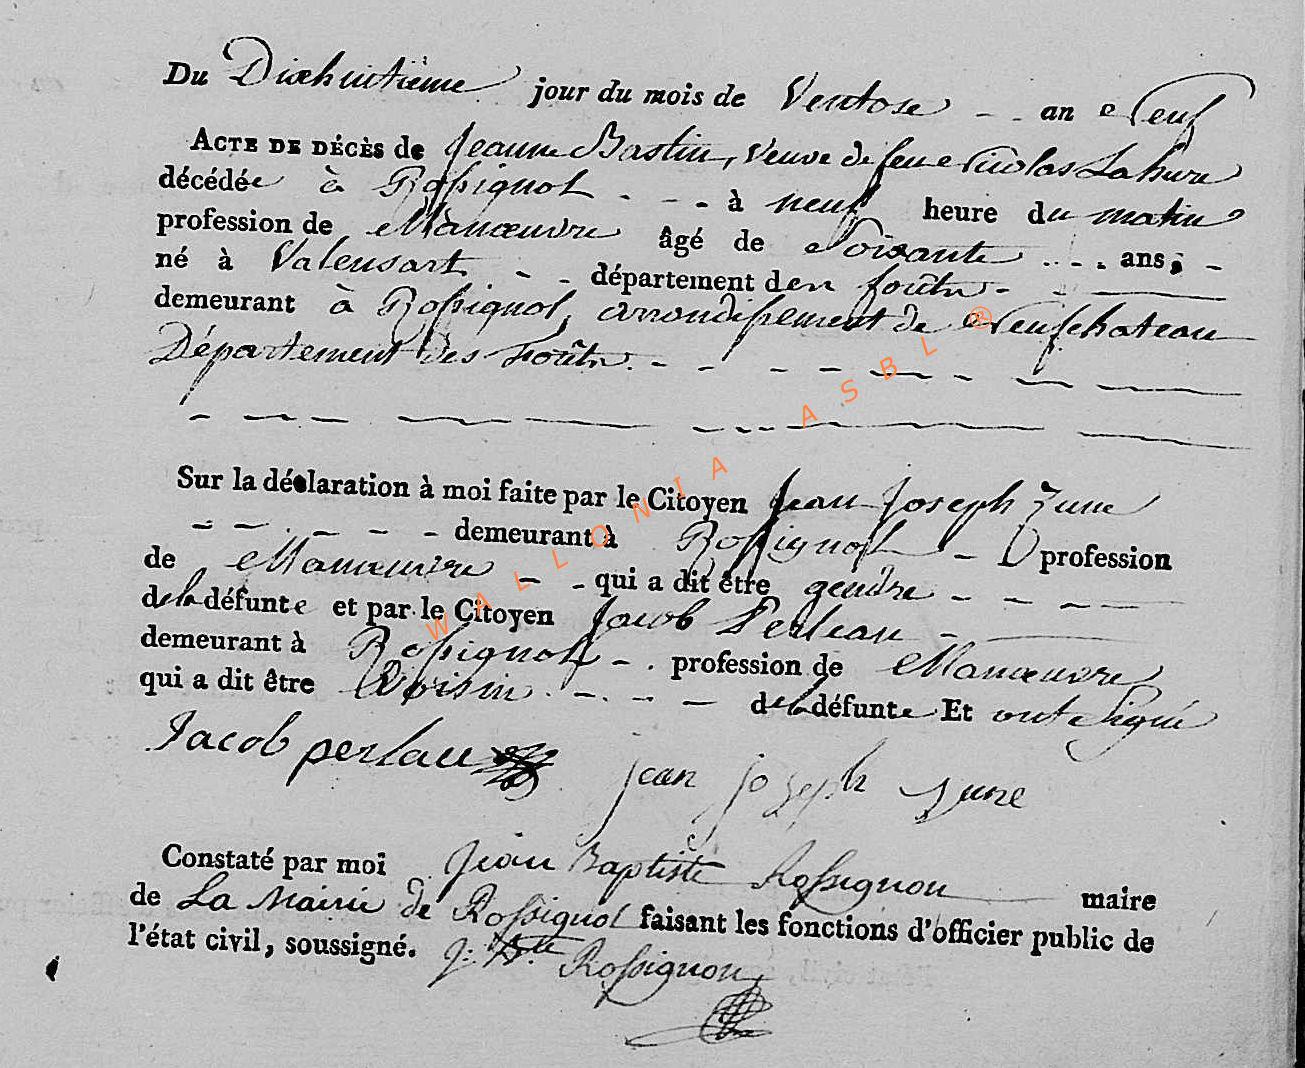 Du Dixhuitième jour du mois de Ventose - - an Neuf
ACTE DE DÉCÈS de Jeanne Bastin, veuve de feue Nicolas Lahure
décédée à Rossignol - - - à neuf heure du matin
profession de Manœuvre âgé de Soixante - - - ans, -
né à Valensart - - département den foûtn -
demeurant à Rossignol, arrondissement de Neufchateau
Département des foûtn. - - - - - - - -
Sur la déclaration à moi faite par le Citoyen Jean Joseph June
- - - - - demeurant à Rossignol - profession
de Manœuvre - - qui a dit être gendre - - - -
de la défunte et par le Citoyen Jacob Perleau -
demeurant à Rossignol - . profession de Manœuvre
qui a dit être Voisin - - - - de la défunte Et ont signé
Jacob perlau jean joseph june
Constaté par moi Jean Baptiste Rossignon maire
de La Mairie de Rossignol faisant les fonctions d'officier public de
l'état civil, soussigné. J: Bte Rossignon
WALLONIA ASBL ®